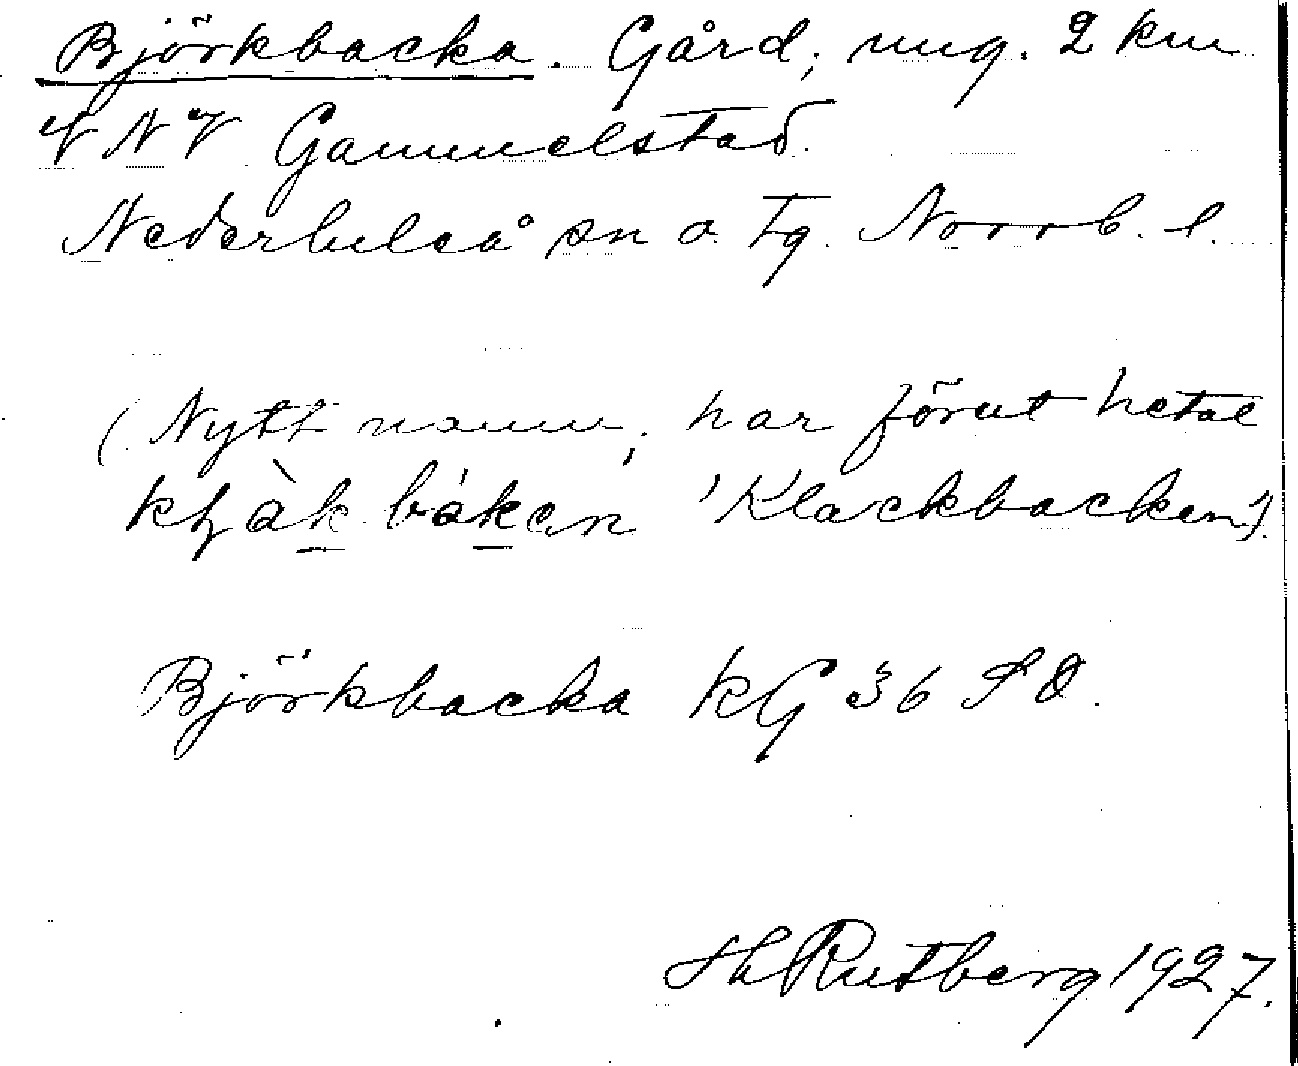 Björkbacka. Gård, ung. 2 km
VNV Gammelstad.
Nederluleå sn o. tg. Norrb. l.
(Nytt namn, har förut hetat
kljàk bákan 'Klackbacken').
Björkbacka KG 36 SO.
Hl Rutberg 1927.